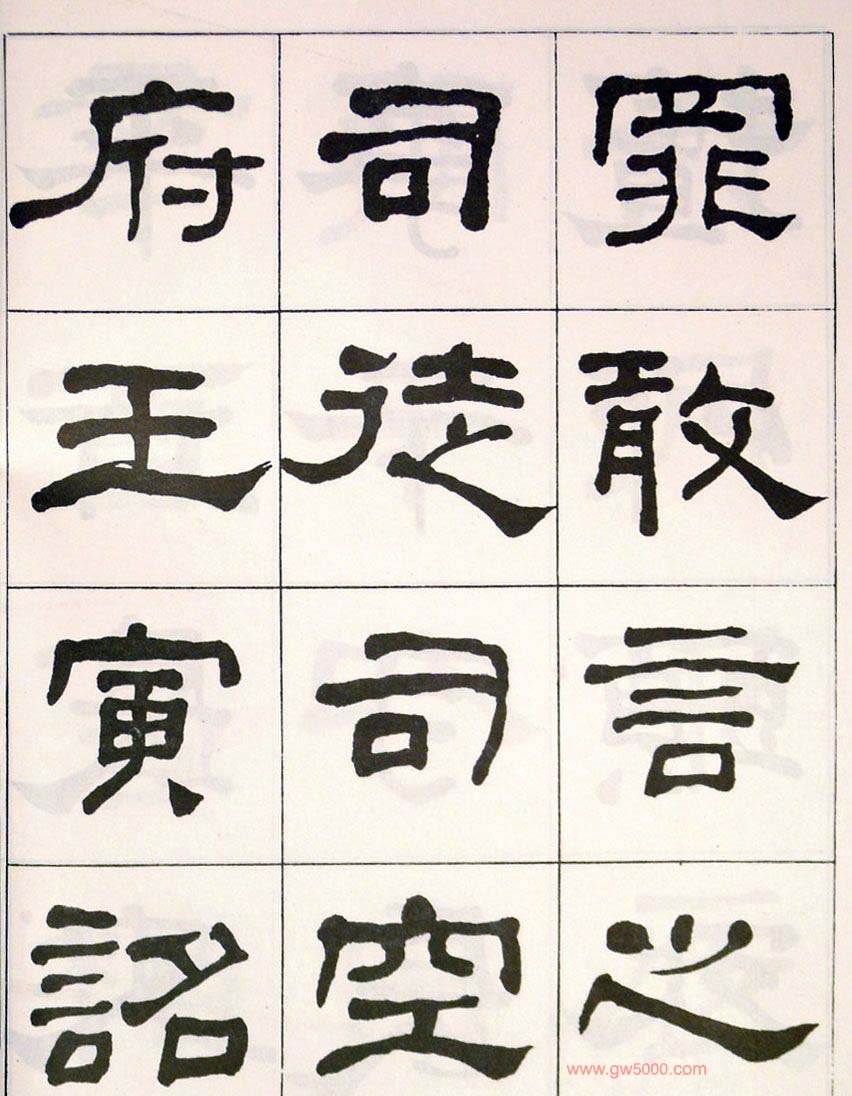 罪敢言之
司徒司空
府壬寅詔
www.gw5000.com